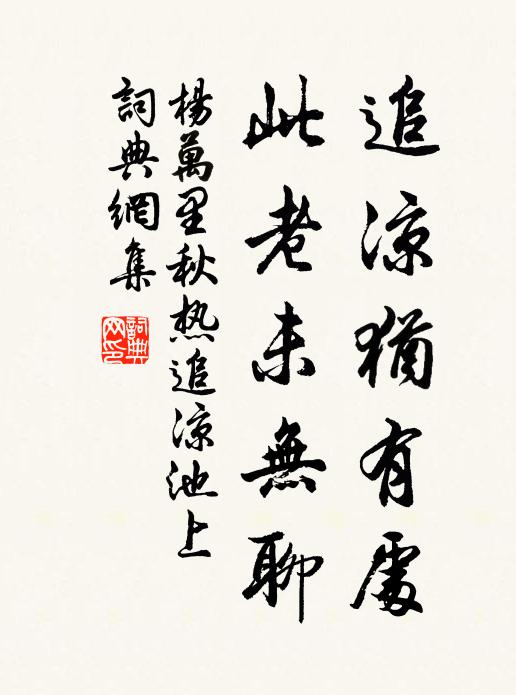 追凉猶有處
此老未無聊
楊萬里秋热追凉池上
詞典網集
詞典網印